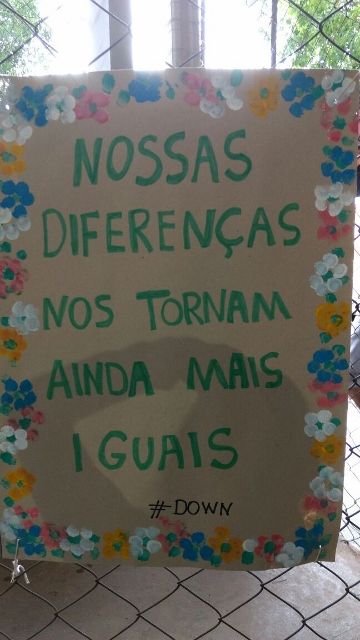 NOSSAS
DIFERENÇAS
NOS TORNAM
AINDA MAIS
IGUAIS
#-DOWN